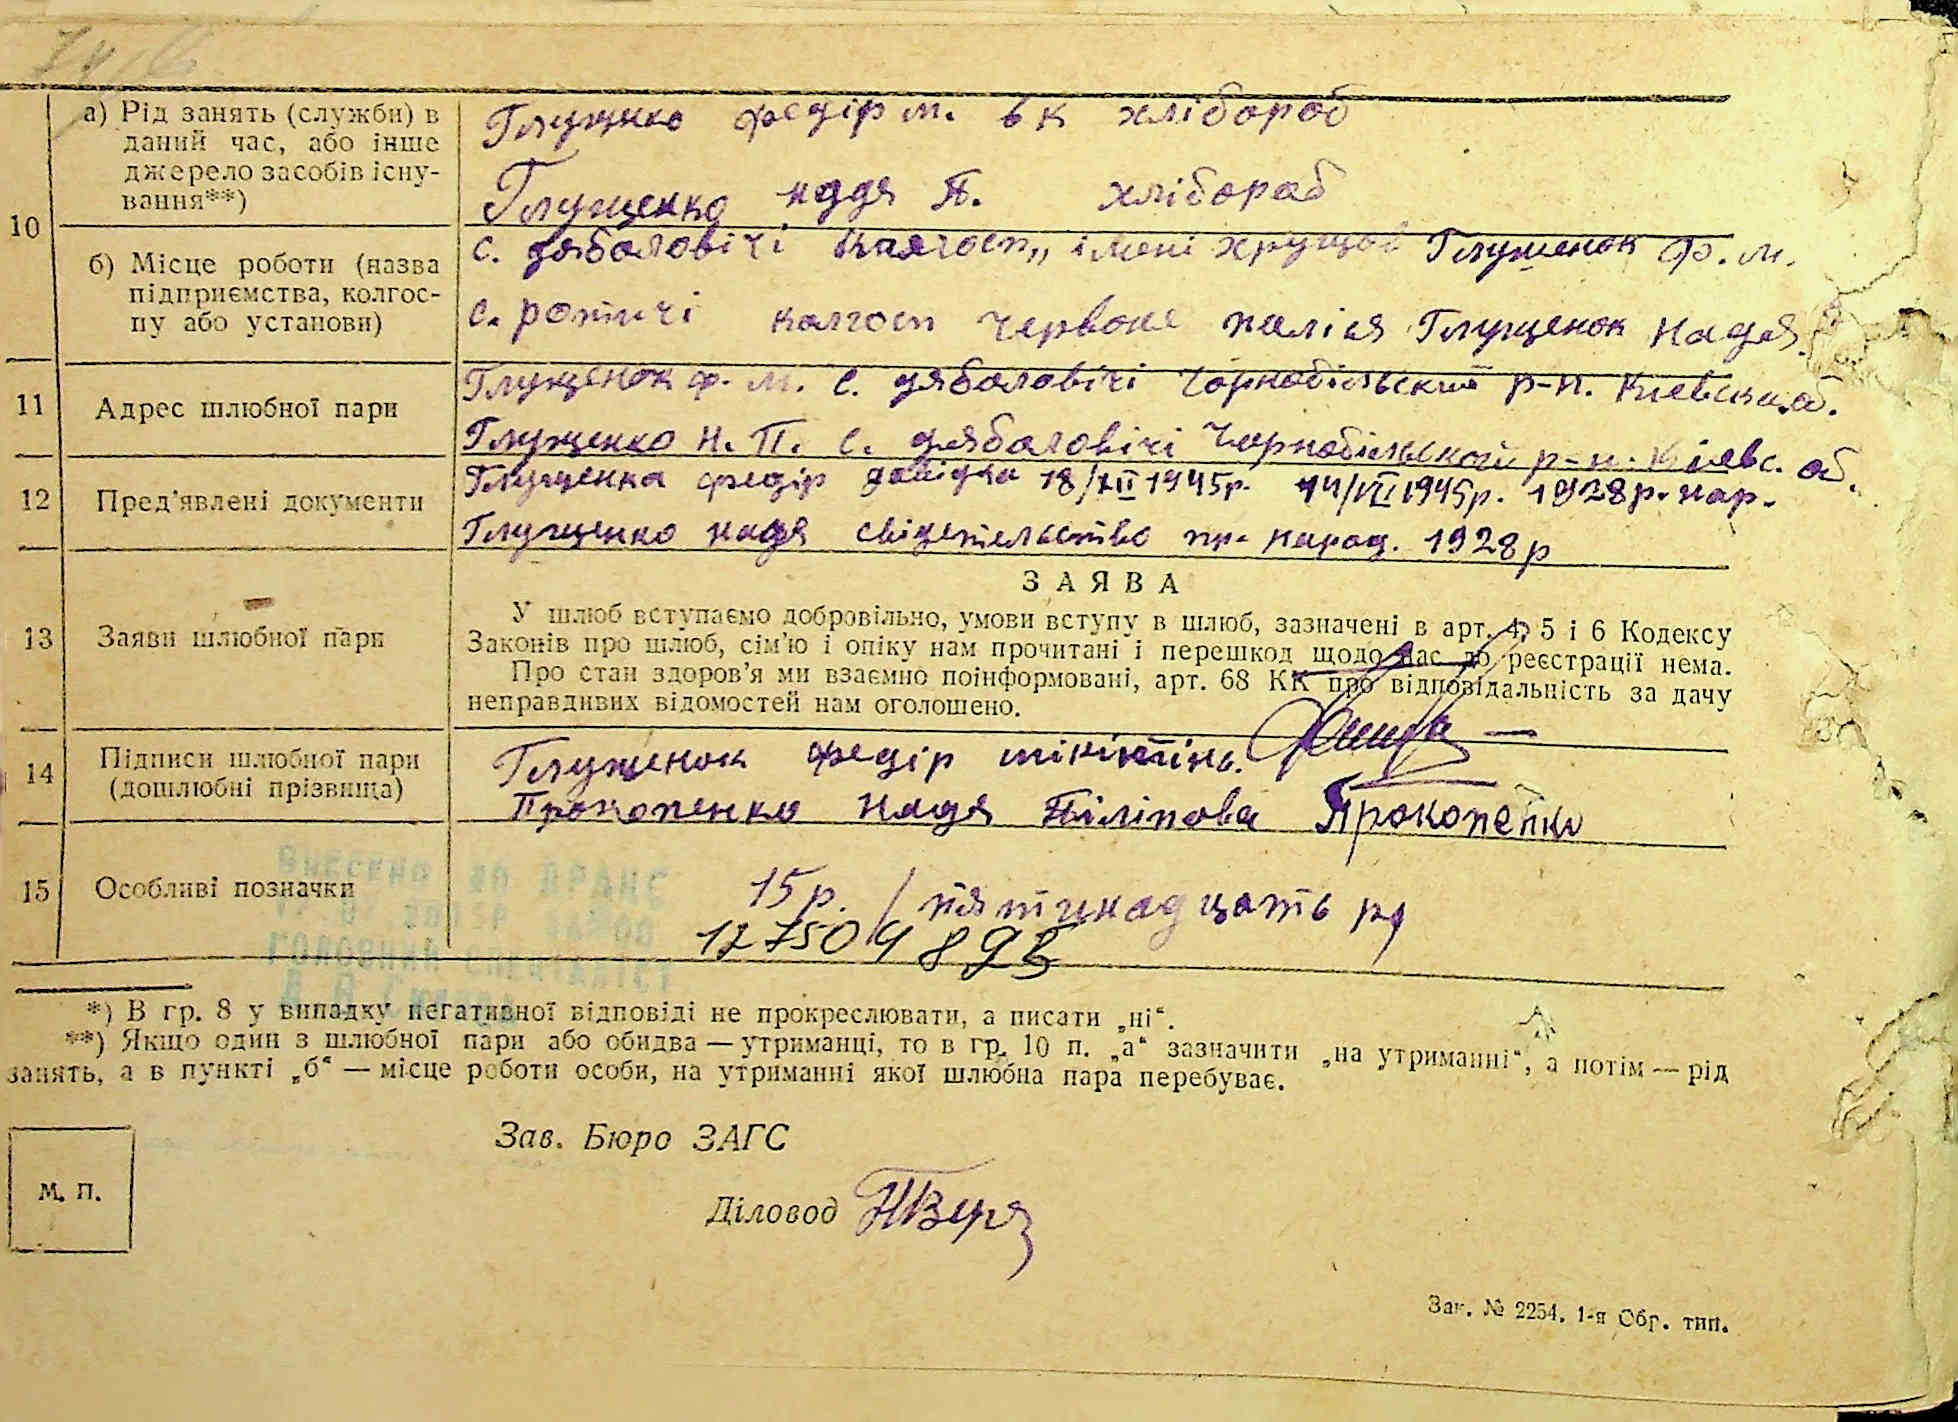 10
а) Рід занять (служби) в
даний час, або інше
джерело засобів існу-
вання**)
Глущнко федір м. в к хлібороб
Глущенко надя П. хлібораб
б) Місце роботи (назва
підприємства, колгос-
пу або установи)
с. дяболовічі імені хрущов Глущенок Ф. м.
с. ротичі калгосп червоне паліся Глущенок Надя.
11
Адрес шлюбної пари
Глущенок ф. м. с. дяболовічі Чорнобільский р-н. Киевска.об.
Глущенко Н. П. с. дяболовічі Чорнобільской р-н. Кіевс. об.
12
Пред'явлені документи
Глущенка федір довідка 18/XII 1945р. 1945р. 1928р. нар.
Глущенко надя свідетельство пр. народ. 1928р
13
Заяви шлюбної пари
ЗАЯВА
У шлюб вступаємо добровільно, умови вступу в шлюб, зазначені в арт. 4, 5 і 6 Кодексу
Законів про шлюб, сім'ю і опіку нам прочитані і перешкод щодо нас до реєстрації нема.
Про стан здоров'я ми взаємно поінформовані, арт. 68 КК про відповідальність за дачу
неправдивих відомостей нам оголошено.
14
Підписи шлюбної пари
(дошлюбні прізвища)
Глущенок федір
Прокопенко Надя Піліпова Прокопенко
15
Особливі позначки
15р. / пятинадцать р
Внесено до ДРАЦС
головний спеціаліст
*) В гр. 8 у випадку негативної відповіді не прокреслювати, а писати „ні“.
**) Якщо один з шлюбної пари або обидва — утриманці, то в гр. 10 п. „а“ зазначити „на утриманні“, а потім — рід
занять, а в пункті „б“ — місце роботи особи, на утриманні якої шлюбна пара перебуває.
Зав. Бюро ЗАГС
М. П.
Діловод
Зак. № 2254. 1-я Обр. тип.